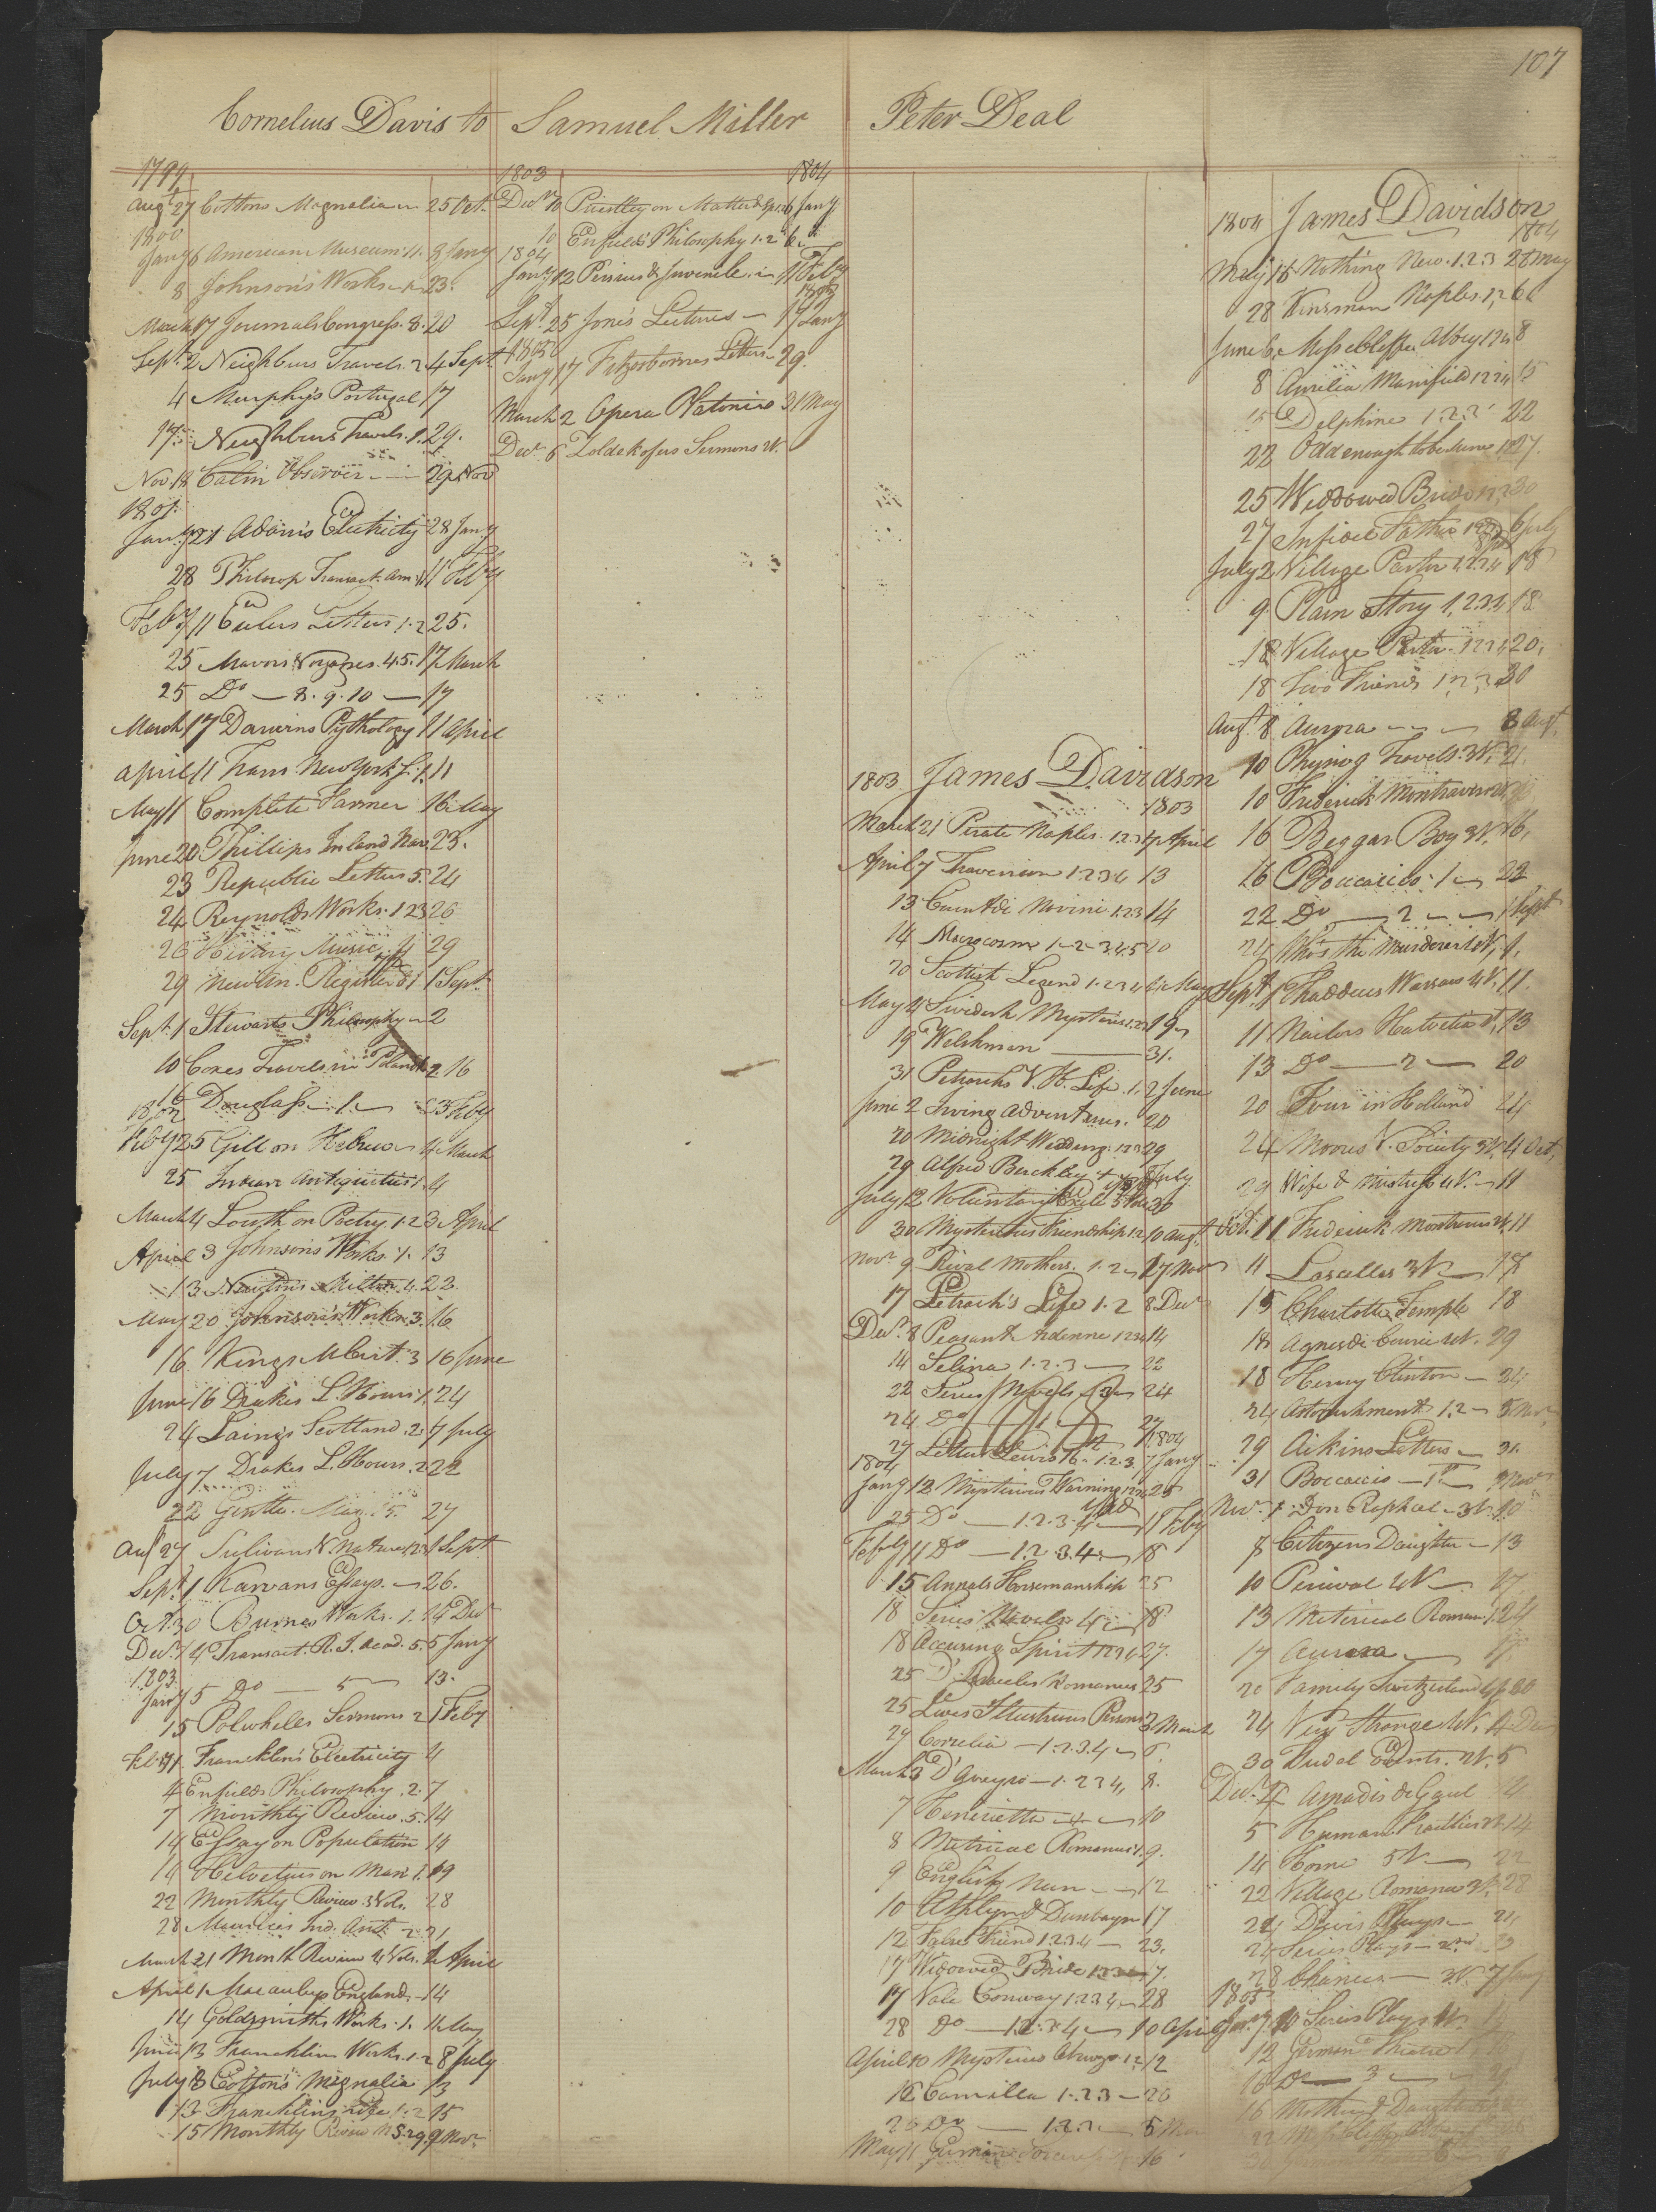 107
Cornelius Davis to Samuel Miller
1799
Augt 27 Cottons Magnalia 25 Oct.
1800
Jany 6 American Museum 11. 8 Jany
8 Johnson's Works 23.
March 17 Journals Congress. 8. 20
Sept. 2 Neighburs Travels. 2 4 Sept
4 Murphy's Portugal 17
17 Neighburs Travels. 1. 29.
Nov 18 Observer 29 Nov
1801
Jany 21 Adam's Electricity 28 Jany
28 Philosop Transact. Am. 11 Feby
Feby 11 Eulers Letters 1.2 25.
25 Mavors Voyages. 4.5. 17 March
25 Do 8.9.10 17
March 17 Darwins Phythology 11 April
April 11 Trans. New York S. 1. 11
May 11 Complete Farmer 16 May
June 20 Phillips Inland Nav. 23.
23 Republic Letters 5. 24
24 Reynolds Works. 1 2 3 26
26 History Music 4 29
29 New An. Register 1 Sept.
Sept. 1 Stewarts Philosophy 2
10 Coxes Travels in Poland 2. 16
16 Douglass 1. 23 Feby
1802
Feby 25 Gill on Hebrew 4 March
25 Indian Antiquities 1. 4
March 4 Louth on Poetry. 1.2 3 April
April 3 Johnson's Works. 1. 13
13 Newton's Milton. 1. 22.
May 20 Johnson's Works. 3. 16
16 Kings M Crit. 3 16 June
June 16 Drakes L. Hours 1. 24
24 Laing's Scotland. 2. 7 July
July 7 Drakes L. Hours. 2 22
22 Gentle. Mag. 5. 27
Aug 27 Sulivans V. Nature 1 Sept
Sept. 1 Karwans Essays. 26.
Oct. 30 Burnes Works. 1. 14 Decr
Decr 14 Transact. R. I. Acad. 5. 5 Jany
1803
Jany 5 Do 5 13.
15 Polwheles Sermons 2 1 Feby
Feb. 1 Francklin's Electricity 4
4 Enfields Philosophy. 2. 7
7 Monthly Review. 5. 14
14 Essay on Population 14
14 Helvetius on Man 1. 19
22 Monthly Review 3 Vols. 28
28 Maurices Ind. Ant. 2 21
March 21 Month Review 4 Vols. 1 April
April 1 Macaulays England. 14
14 Goldsmiths Works. 1. 14 May
June 13 Francklin Works. 1.2 8 July
July 8 Cotton's Magnalia 13
13 Francklins Life 1.2 15
15 Monthly Review N S. 29 9 Novr
1803 1804
Decr 10 Priestley on Matter & Spi. 6 Jany
10 Enfields Philosophy 1.2 6.
1804
Jany 12 Persius & Juvenile 11 Feby
1805
Sept. 25 Jone's Lectures 17 Jany
1805
Jany 17 Fitzosbornes Letters 29.
March 2 Opera Platonis 31 May
Decr 6 Zoldekofers Sermons V.
Peter Deal
1803 James Davidson
1803
March 21 Pirate Naples. 1.2.3 7 April
April 7 Traversion 1.2.3.4 13
13 Count di Novini 1.2.3 14
14 Microcosm 1.2.3.4.5 20
20 Scottish Legend 1.2.3.4 4 May
May 4 Swedish Mysteries 1.2.3 19
19 Welshman 31.
31 Petrarchs V. H. Life. 1. 2 June
June 2 Irving Adventures. 20
20 Midnight Wedding. 1.2.3 29
29 Alfred Berckley July
July 12 Voluntary Exile 30
30 Mysterious Friendship 1.2 10 Augt.
Novr 9 Rival Mothers. 1.2 17 Nov
17 Petrach's Life 1.2 8 Decr
Decr. 8 Peasant Ardenne 1.2.3.4 14
14 Selina 1.2.3 22
22 Series Novels 3 24
24 Do 1 27
27 Letters Lewis 16. 1.2.3 7 Jany
1804
1804
Jany 12 Mysterious Warning 25
25 Do 1.2.3.4 11 Feby
Feby 11 Do 1.2.3.4 18
15 Annals Horsemanship 25
18 Series Novels 4 18
18 Accusing Spirit 1.2.3.4 27.
25 D'Israeles Romances 25
25 Lives Illustrious Persons 3 March
27 Correlia 1.2.3.4 6.
March 3 D'Gueyso 1.2.3.4, 8.
7 Henrietta 4 10
8 Metrical Romances 1. 9.
9 English Nun 12
10 Athlyn & Dunbayn 17
12 False Friend 1.2.3.4 23.
17 Widowed Bride 1.2.3 7.
17 Vale Conway 1.2.3.4 28
28 Do 1.2.3.4 10 April
April 10 Mysterious Marriage 1.2 12
12 Camilla 1.2.3 26
26 Do 1.2.3 5 May
May 11 German 16
1804 James Davidson
1804
May 16 Nothing New. 1.2.3 28 May
28 Kinsman Naples. 1,2 6
June 6 Miss Abbey 1 2 4 8
8 Amelia Mansfield 1 2 3 4 15
15 Delphine 1.2.3 22
22 Odd enough to be sure 1.2 27.
25 Widdowed Bride 1 2 3 30
27 Infidel Father 1.2.3 6 July
July 2 Village Pastor 1.2.3.4 18
9 Plain Story 1.2.3.4 18
18 Village Pastor 1 2 3 4 20,
18 Two Friends 1.2.3 30
Augt. 8 Aurora 8 Augt.
10 Phynog Travels. 3 V. 21.
10 Frederick Montravers
16 Beggar Boy 3 V. 16,
16 Boccacio 1 22
22 Do 2 1 Sept
24 Who's the Murderer 4 V, 1.
Sept. 1 Thaddeus Warsaw 4 V. 11.
11 Nailors Helvetia V, 13
13 Do 2 20
20 Tour in Holland 24
24 Moores V. Society 3 V. 4 Oct,
29 Wife & Mistress 4 V. 11
Oct. 11 Frederick 11
11 Lascelles 3 V. 18
15 Charlotte Temple 18
18 Agnes di Courci 4 V. 29
18 Henry Clinton 24
24 Astonishment 1,2 5 Nov
29 Aikins Letters 31.
31 Boccacio 1 Nov
Nov. 1 Don Raphael 3 V. 10
8 Citizens Daughter 13
10 Percival 4 V. 17
13 Meterical Roman 1. 24
17 Aurora 17.
20 Family Switzerland 30
24 Very Strange 4 V. 4 Dec
30 Events. 2 V. 5
Decr. 4 Amadis de Gaul 4
5 Human Frailties 14
14 Home 5 V. 22
22 Village Romance 3 V. 28
24 Davis Plays 24
24 Series Plays 2nd
28 Chances 3 V. 7 Jany
1805
Jany 10 Series Plays
12 German Theatre
16 Do 3
16 Mother & Daughter
22
30